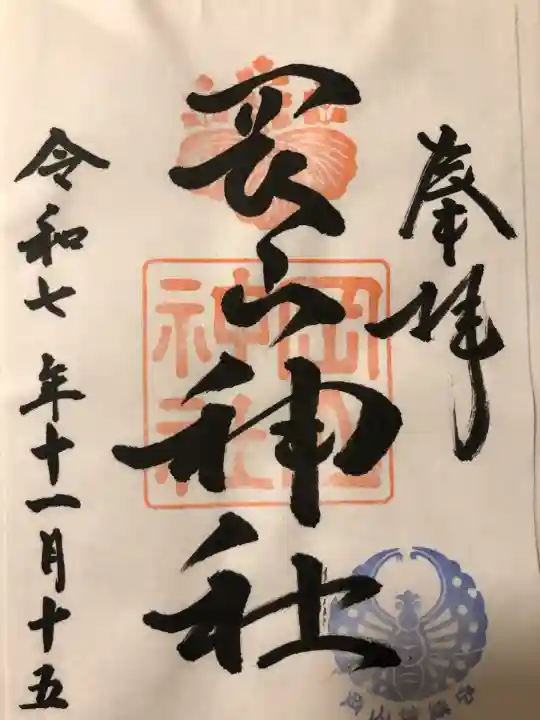 奉拝
岡山神社
岡山神社
令和七年十一月十五